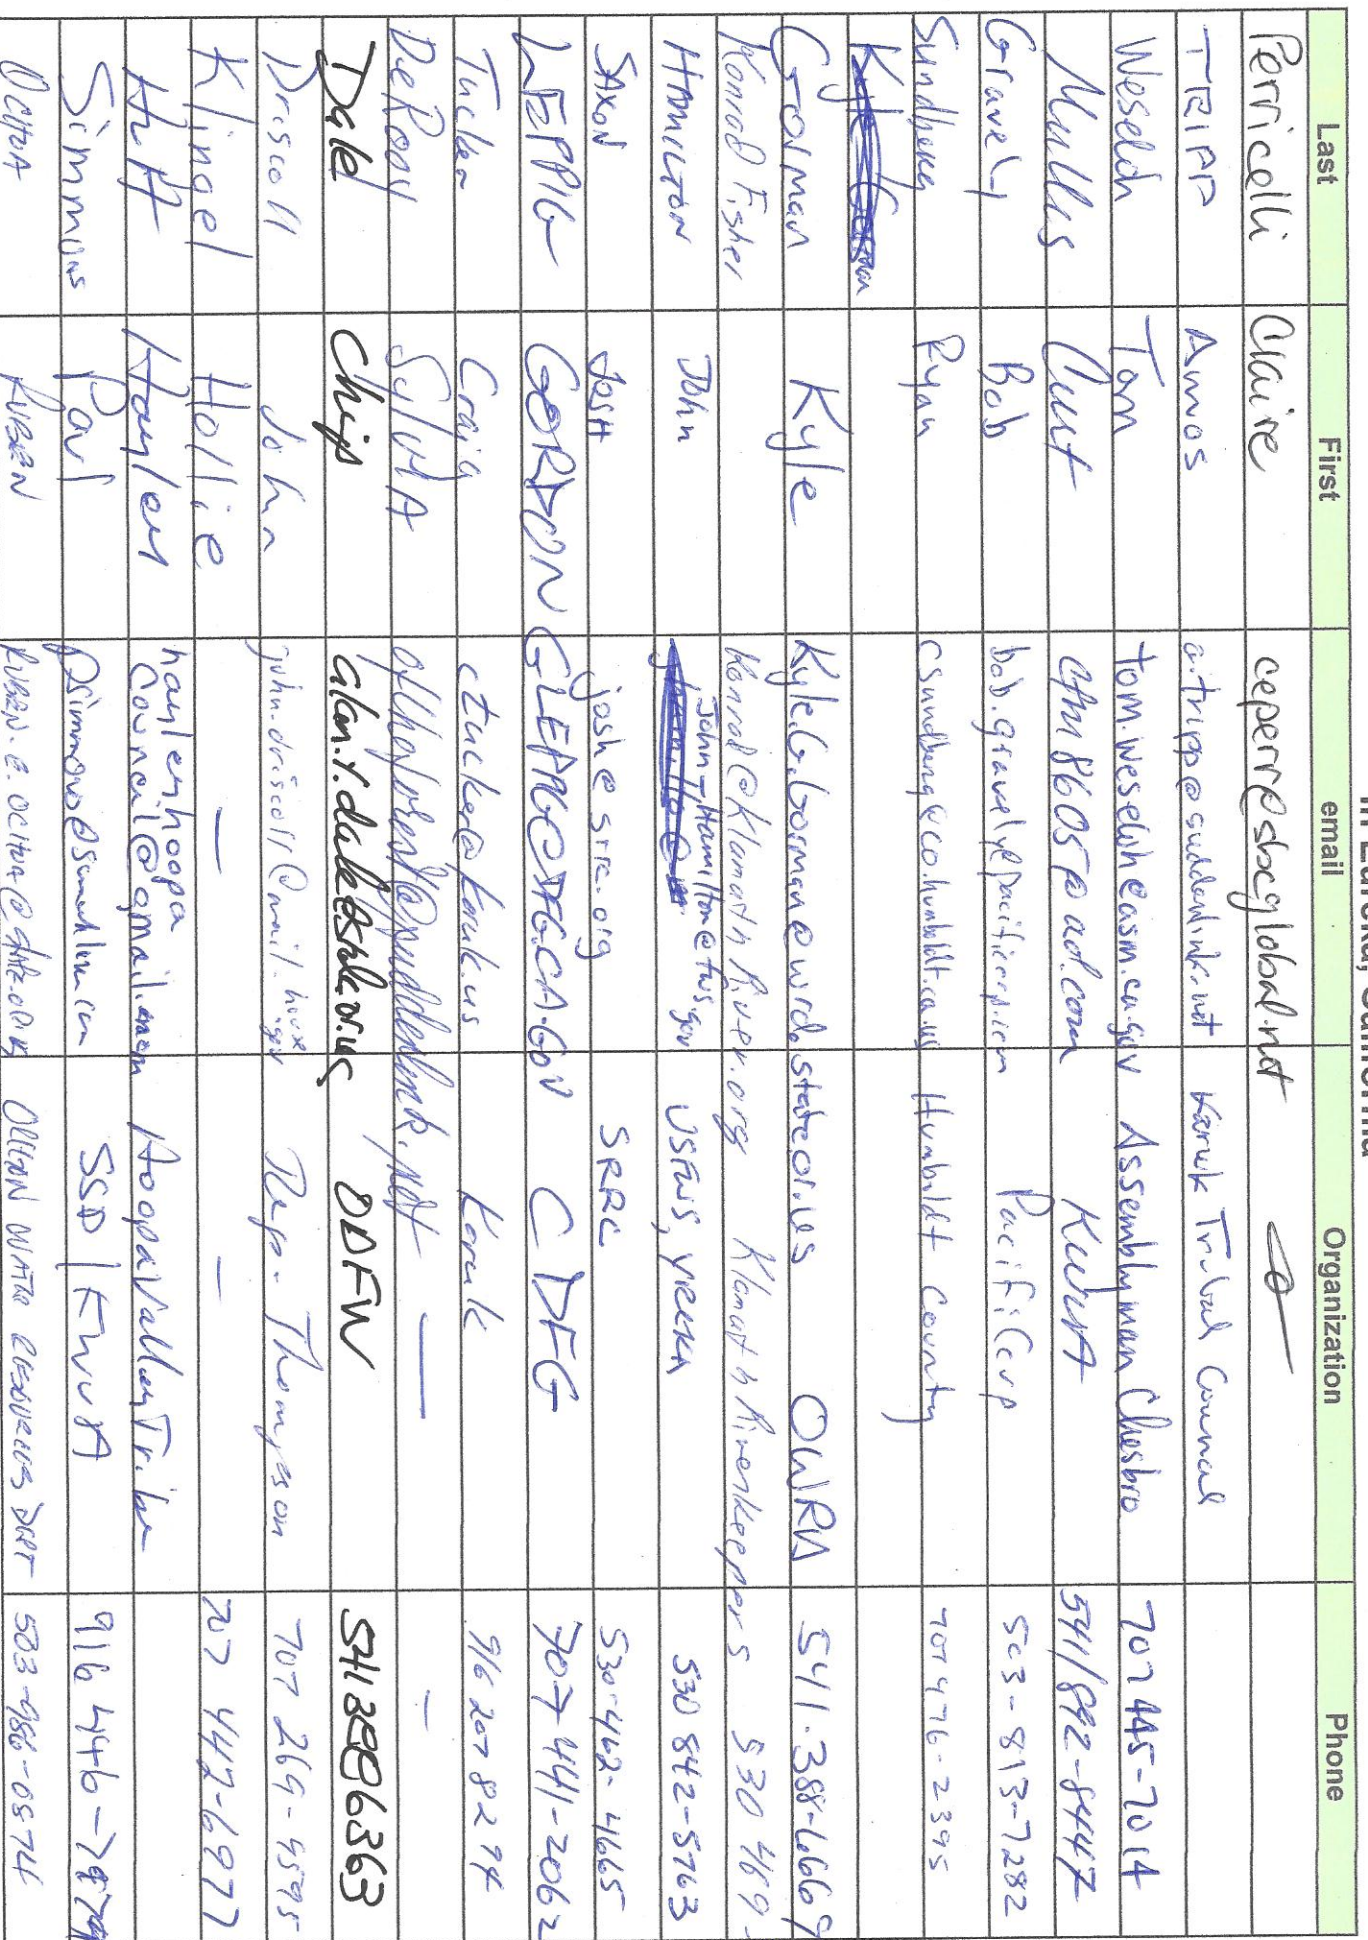 in Eureka, California
Last First email Organization Phone
Perricelli Claire ceperr@sbcglobal.net
TRIPP Amos a.tripp@suddenlink.net Karuk Tribal Council
Weseloh Tom tom.weseloh@asm.ca.gov Assemblyman Chesbro 707 445-7014
Mullis Curt cfm8605@aol.com KWUA 541/892-8447
Gravely Bob bob.gravely@pacificorp.com PacifiCorp 503-813-7282
Sundberg Ryan rsundberg@co.humboldt.ca.us Humboldt County 707 476-2395
Kyle Gorman
Gorman Kyle Kyle.G.Gorman@wrd.state.or.us OWRD 541-388-6669
Konrad Fisher Konrad@KlamathRiver.org Klamath Riverkeeper 530 469-
HAMILTON John John_Hamilton@fws.gov USFWS, YREKA 530 842-5763
SAXON JOSH josh@srrc.org SRRC 530-462-4665
LEPPIG GORDON GLEPPIG@DFG.CA.GOV CDFG 707-441-2062
Tucker Craig ctucker@karuk.us Karuk 916 207 8294
DeRooy SylviA — —
Dale Chip alan.r.dale@state.or.us ODFW 541 3886363
Driscoll John john.driscoll@mail.house.gov Rep. Thompson 707 269-9595
Klingel Hollie — — 707 442-6977
Hutt Hayley hayleyhoopa
council@gmail.com Hoopa Valley Tribe
Simmons Paul psimmons@somachlaw.com SSD/KWUA 916 446-7979
OCHOA RUBEN RUBEN.E.OCHOA@STATE.OR.US OREGON WATER RESOURCES DEPT 503-986-0874